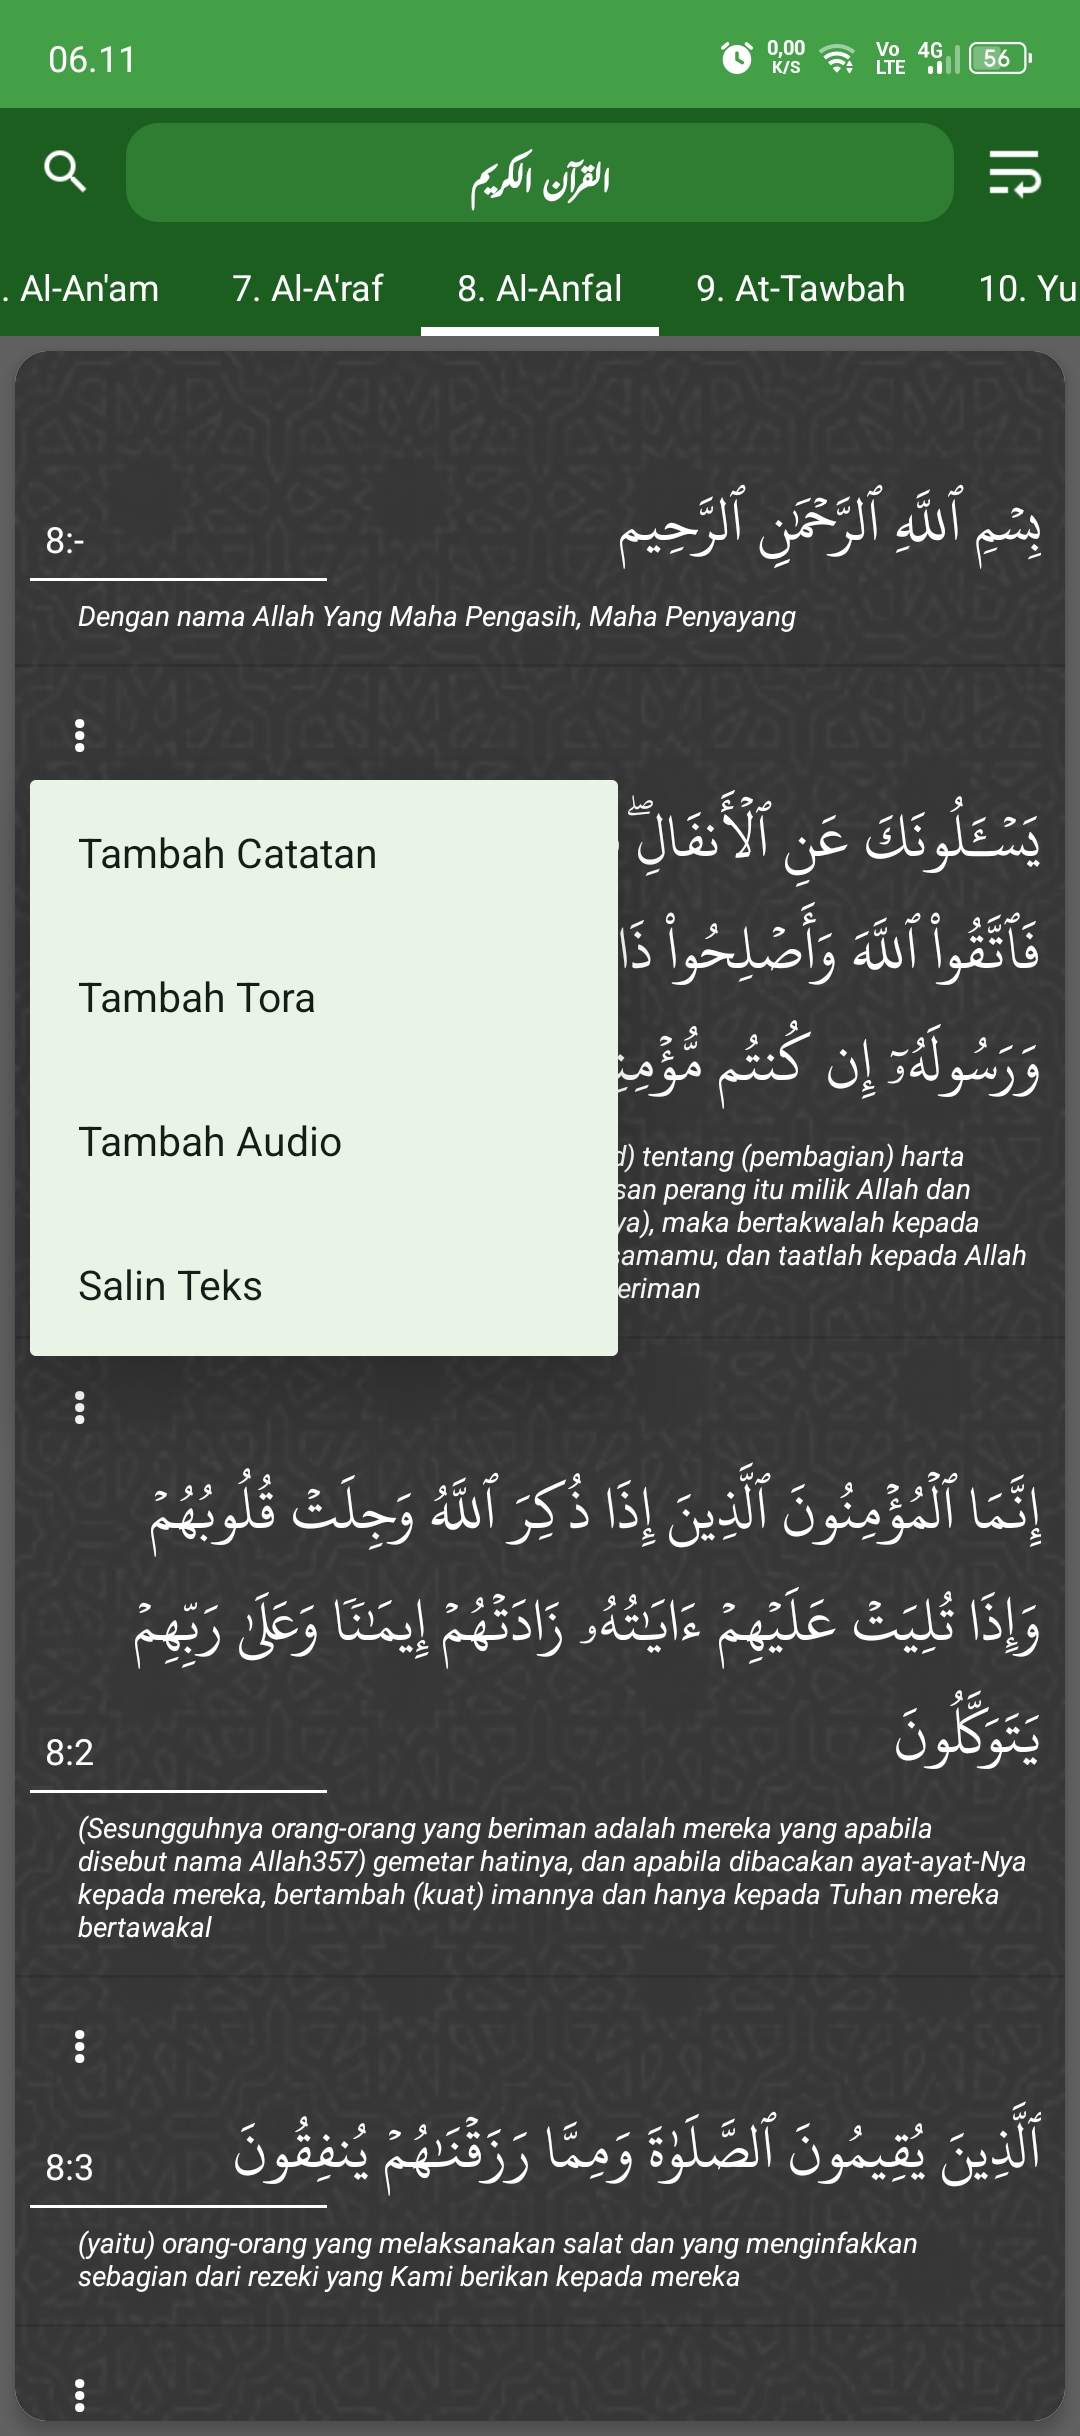 06.11
0,00 K/S
Vo LTE
4G
56
القرآن الكريم
. Al-An'am 7. Al-A'raf 8. Al-Anfal 9. At-Tawbah 10. Yu
بِسۡمِ ٱللَّهِ ٱلرَّحۡمَٰنِ ٱلرَّحِيمِ
8:-
Dengan nama Allah Yang Maha Pengasih, Maha Penyayang
Tambah Catatan
Tambah Tora
Tambah Audio
Salin Teks
يَسۡـَٔلُونَكَ عَنِ ٱلۡأَنفَالِۖ
فَٱتَّقُواْ ٱللَّهَ وَأَصۡلِحُواْ ذَا
وَرَسُولَهُۥٓ إِن كُنتُم مُّؤۡمِنِ
d) tentang (pembagian) harta
san perang itu milik Allah dan
ya), maka bertakwalah kepada
samamu, dan taatlah kepada Allah
eriman
إِنَّمَا ٱلۡمُؤۡمِنُونَ ٱلَّذِينَ إِذَا ذُكِرَ ٱللَّهُ وَجِلَتۡ قُلُوبُهُمۡ
وَإِذَا تُلِيَتۡ عَلَيۡهِمۡ ءَايَٰتُهُۥ زَادَتۡهُمۡ إِيمَٰنٗا وَعَلَىٰ رَبِّهِمۡ
يَتَوَكَّلُونَ
8:2
(Sesungguhnya orang-orang yang beriman adalah mereka yang apabila
disebut nama Allah357) gemetar hatinya, dan apabila dibacakan ayat-ayat-Nya
kepada mereka, bertambah (kuat) imannya dan hanya kepada Tuhan mereka
bertawakal
ٱلَّذِينَ يُقِيمُونَ ٱلصَّلَوٰةَ وَمِمَّا رَزَقۡنَٰهُمۡ يُنفِقُونَ
8:3
(yaitu) orang-orang yang melaksanakan salat dan yang menginfakkan
sebagian dari rezeki yang Kami berikan kepada mereka